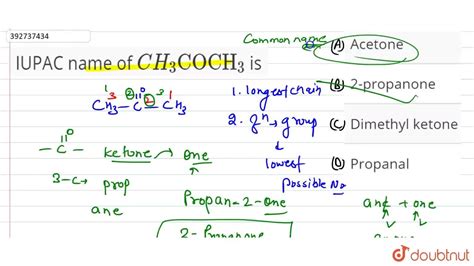 392737434
IUPAC name of CH₃COCH₃ is
Common name
(A) Acetone
(B) 2-propanone
(C) Dimethyl ketone
(D) Propanal
1 2 3
3 2 1
CH₃ – C – CH₃
O
1. longest chain
2. fⁿ → group
lowest
possible No
O
– C –
ketone → one
3-C → prop
ane
Propan-2-one
2-Propanone
ane + one
doubtnut